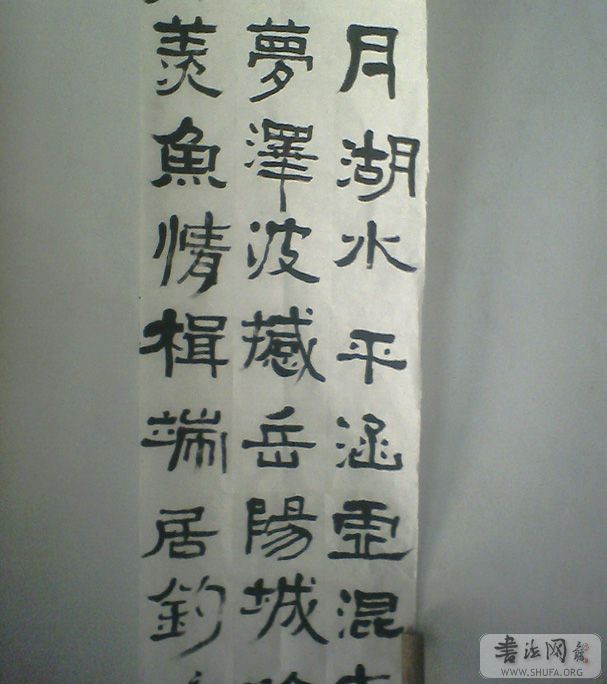 月湖水平涵虛混
夢澤波撼岳陽城
羨魚情楫端居釣
書法网
WWW.SHUFA.ORG